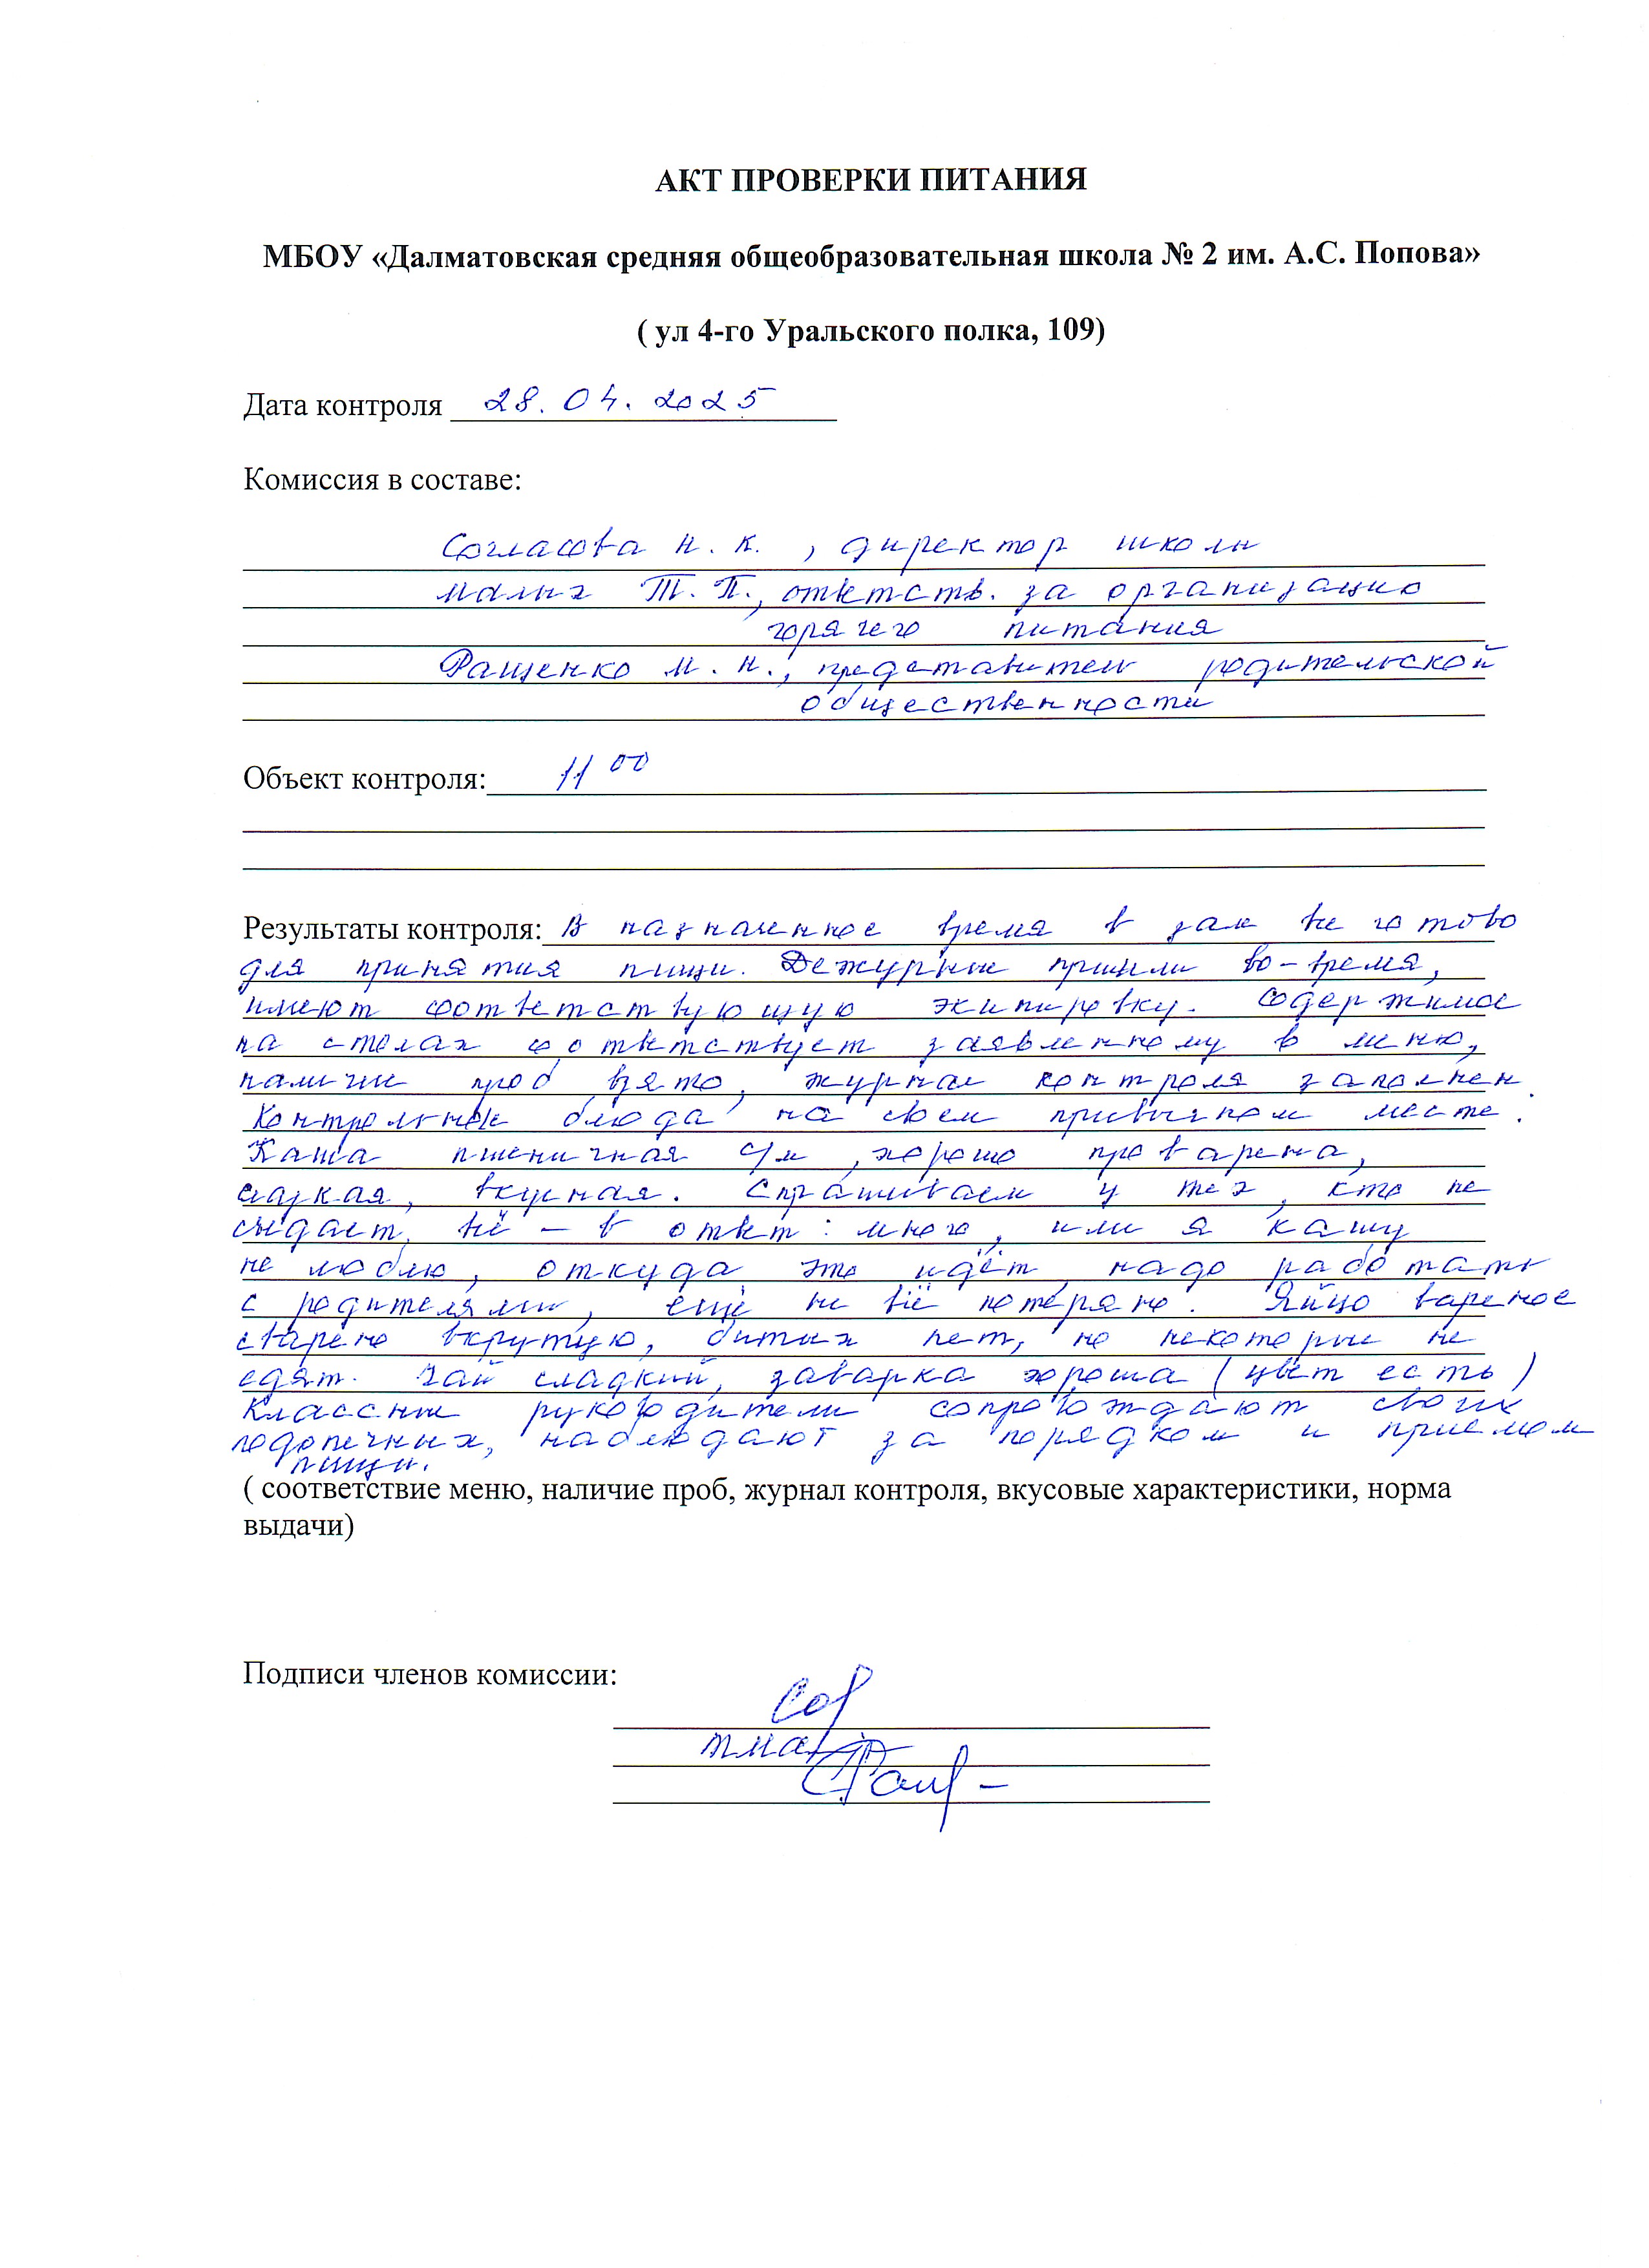 АКТ ПРОВЕРКИ ПИТАНИЯ
МБОУ «Далматовская средняя общеобразовательная школа № 2 им. А.С. Попова»
( ул 4-го Уральского полка, 109)
Дата контроля 28.04.2025
Комиссия в составе:
Согласова Н.К., директор школы
Малых Т.П., ответств. за организацию
горячего питания
Ращенко М.Н., представитель родительской
общественности
Объект контроля: 11 00
Результаты контроля: В назначенное время в зале все готово
для принятия пищи. Дежурные пришли во-время,
имеют соответствующую экипировку. Содержимое
на столах соответствует заявленному в меню,
наличие проб взято, журнал контроля заполнен.
Контрольные блюда на своем привычном месте.
Каша пшеничная с/м, хорошо проварена,
сладкая, вкусная. Спрашиваем у тех, кто не
съедает всё – в ответ: много, или я кашу
не люблю, откуда это идёт, надо работать
с родителями, ещё не всё потеряно. Яйцо вареное
сварено вкрутую, битых нет, но некоторые не
едят. Чай сладкий, заварка хороша (цвет есть)
Классные руководители сопровождают своих
подопечных, наблюдают за порядком и приемом
пищи.
( соответствие меню, наличие проб, журнал контроля, вкусовые характеристики, норма
выдачи)
Подписи членов комиссии: